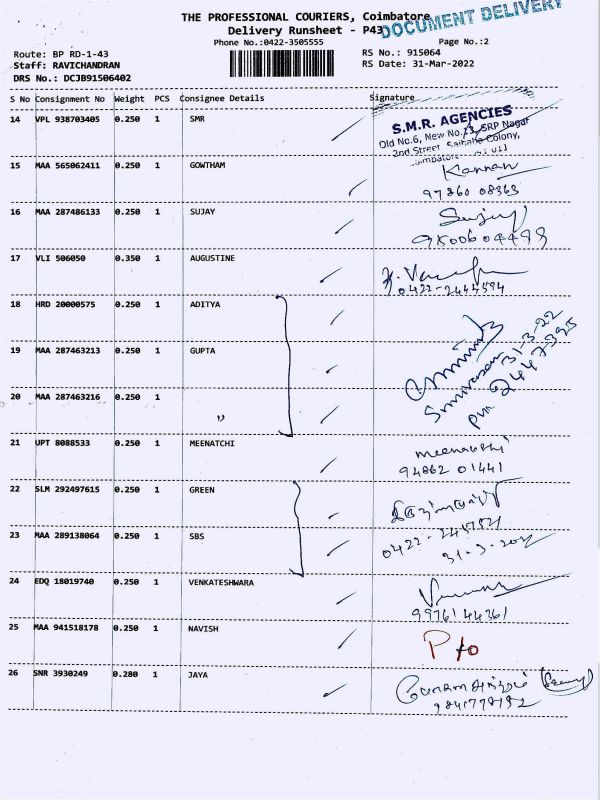 THE PROFESSIONAL COURIERS, Coimbatore
DOCUMENT DELIVERY
Delivery Runsheet - P43
Phone No.:0422-3505555 Page No.:2
Route: BP RD-1-43 RS No.: 915064
Staff: RAVICHANDRAN RS Date: 31-Mar-2022
DRS No.: DCJB91506402
S No Consignment No Weight PCS Consignee Details Signature
14 VPL 938703405 0.250 1 SMR
S.M.R. AGENCIES
Old No.6, New No.13, SRP Nagar
2nd Street, Saibaba Colony,
15 MAA 565062411 0.250 1 GOWTHAM Kannan
97860 08363
16 MAA 287486133 0.250 1 SUJAY Sujay
9500604493
17 VLI 506050 0.350 1 AUGUSTINE
0422-2444594
18 HRD 20000575 0.250 1 ADITYA
19 MAA 287463213 0.250 1 GUPTA
Srinivasan 31-3-22
20 MAA 287463216 0.250 1 "
21 UPT 8088533 0.250 1 MEENATCHI Meenakshi
94862 01441
22 SLM 292497615 0.250 1 GREEN
23 MAA 289138064 0.250 1 SBS
24 EDQ 18019740 0.250 1 VENKATESHWARA
9976144361
25 MAA 941518178 0.250 1 NAVISH P to
26 SNR 3930249 0.280 1 JAYA